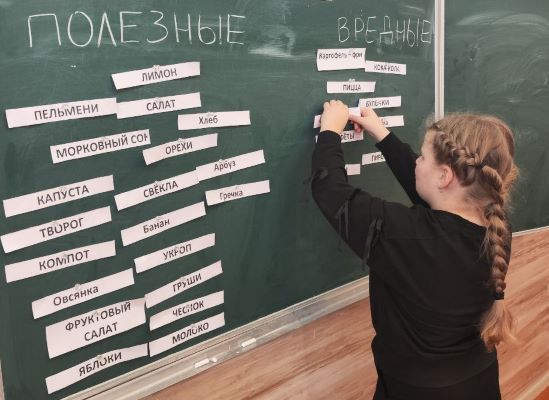 ПОЛЕЗНЫЕ
ЛИМОН
ПЕЛЬМЕНИ
САЛАТ
Хлеб
МОРКОВНЫЙ СОК
ОРЕХИ
Арбуз
КАПУСТА
СВЁКЛА
Гречка
ТВОРОГ
Банан
КОМПОТ
УКРОП
Овсянка
ГРУШИ
ФРУКТОВЫЙ
САЛАТ
ЧЕСНОК
ЯБЛОКИ
МОЛОКО
ВРЕДНЫЕ
Картофель - фри
КОКА-КОЛА
ПИЦЦА
БУЛОЧКИ